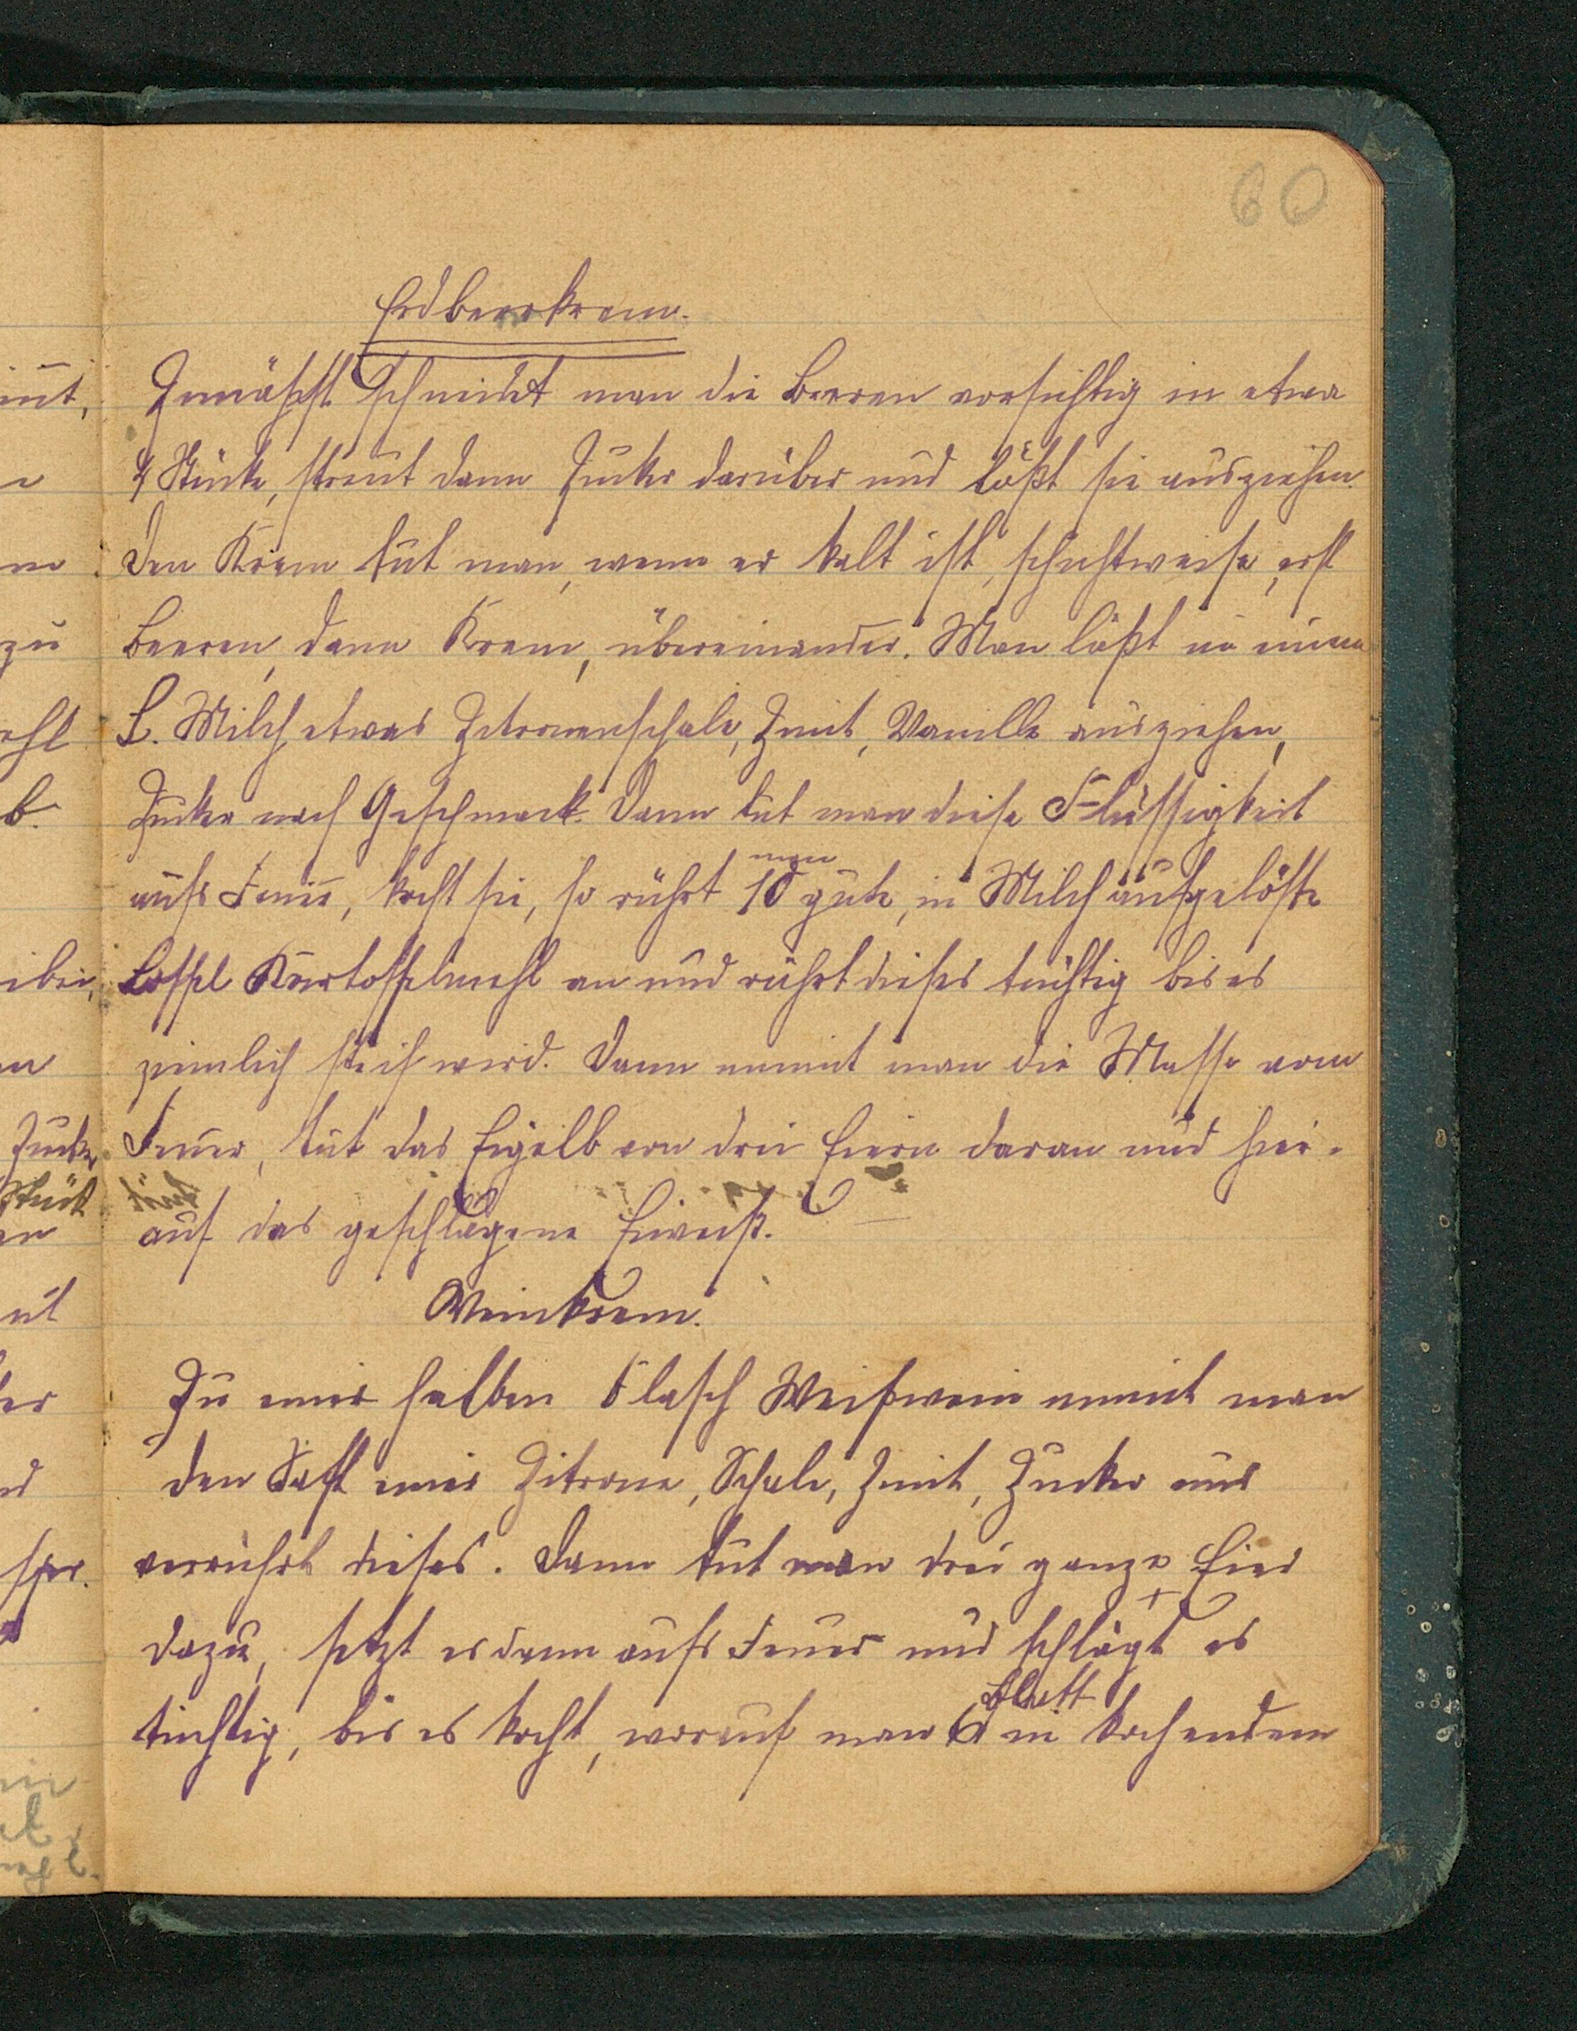 60
Erdbeerkrem.
Zunächst schneidet man die Beeren vorsichtig in etwa
4 Stücke, streut dann Zucker darüber und läßt sie ausziehen.
Den Krem tut man, wenn er kalt ist, schichtweise, erst
Beeren, dann Krem, übereinander. Man läßt in einem
L. Milch etwas Zitronenschale, Zimt, Vanille ausziehen,
Zucker nach Geschmack. Dann tut man diese Flüssigkeit
aufs Feuer, kocht sie, so rührt man 10 gute, in Milch aufgelöste
Löffel Kartoffelmehl an und rührt dieses tüchtig bis es
ziemlich steif wird. Dann nimmt man die Masse vom
Feuer, tut das Eigelb von drei Eiern daran und hier-
auf das geschlagene Eiweiß.
Weinkrem.
Zu einer halben Flasch Weißwein nimmt man
den Saft einer Zitrone, Schale, Zimt, Zucker und
verrührt dieses. Dann tut man drei ganze Eier
dazu, setzt es dann aufs Feuer und schlägt es
tüchtig, bis es kocht, worauf man 6 Blatt in kochendem